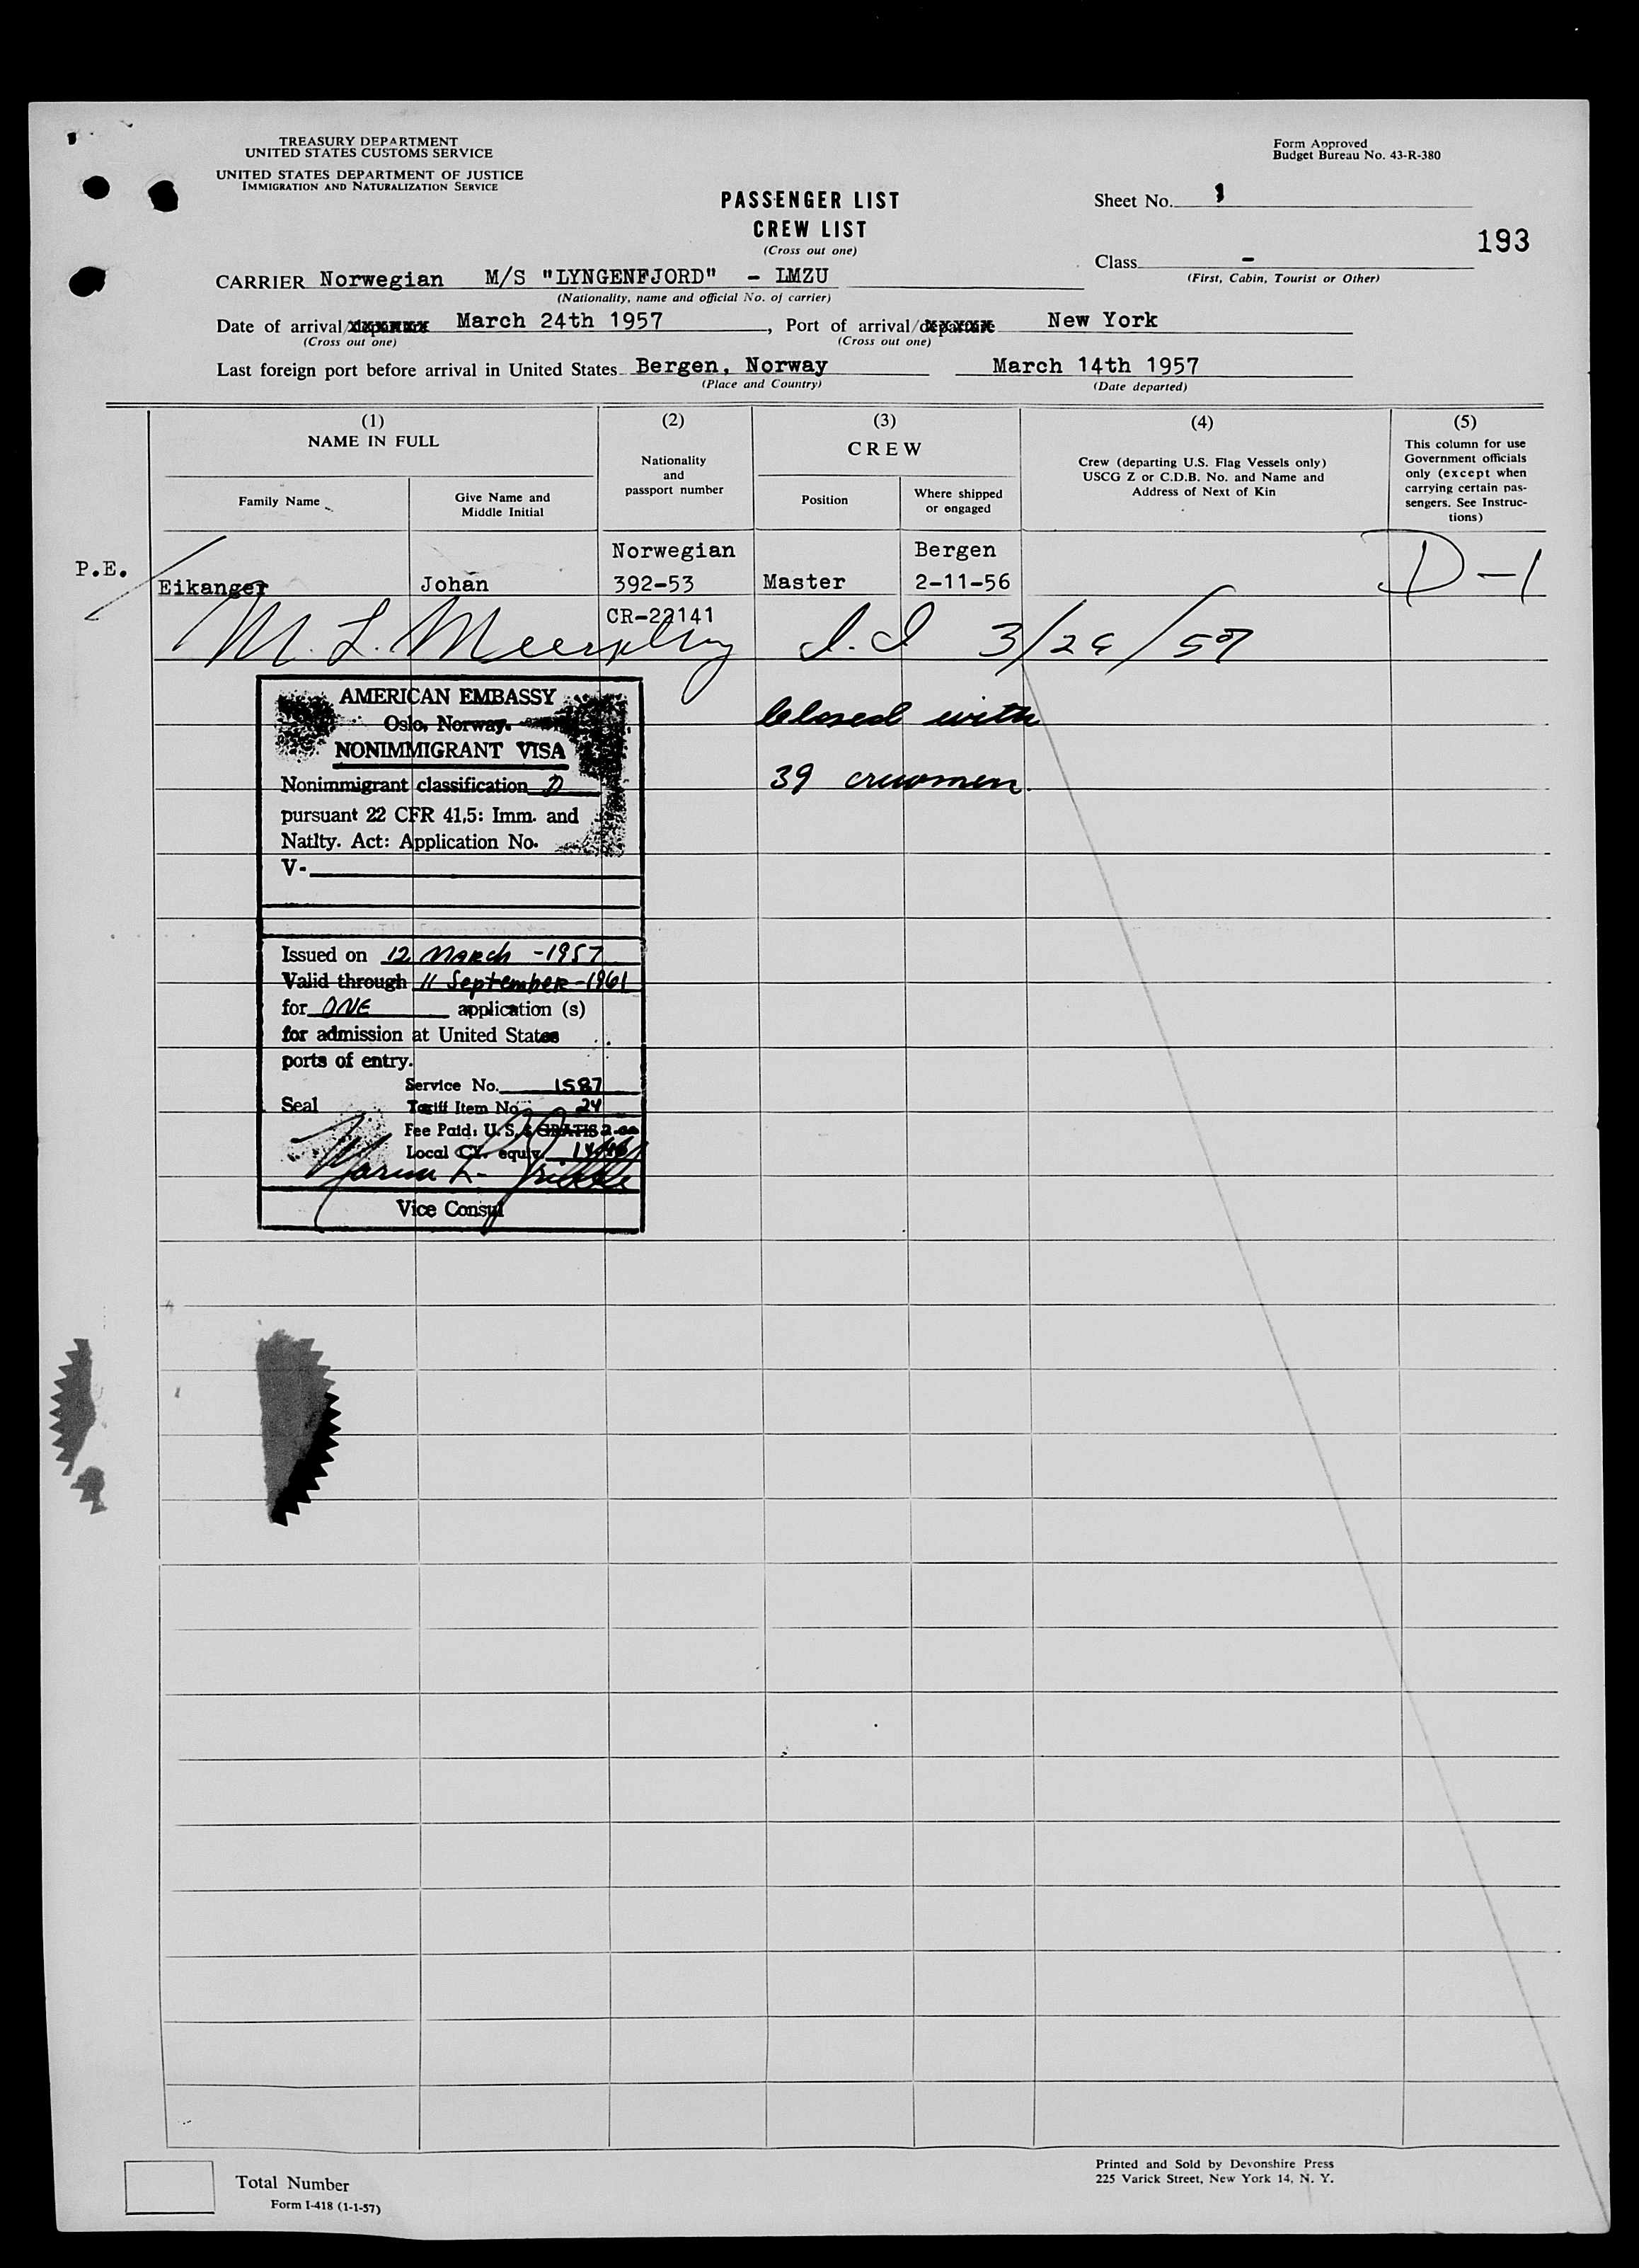 TREASURY DEPARTMENT
UNITED STATES CUSTOMS SERVICE
UNITED STATES DEPARTMENT OF JUSTICE
IMMIGRATION AND NATURALIZATION SERVICE
Form Approved
Budget Bureau No. 43-R-380
PASSENGER LIST
CREW LIST
(Cross out one)
Sheet No. 1
193
Class -
(First, Cabin, Tourist or Other)
CARRIER Norwegian M/S "LYNGENFJORD" - LMZU
(Nationality, name and official No. of carrier)
Date of arrival/departure March 24th 1957, Port of arrival/departure New York
(Cross out one) (Cross out one)
Last foreign port before arrival in United States Bergen, Norway March 14th 1957
(Place and Country) (Date departed)
(1) (2) (3) (4) (5)
NAME IN FULL
Family Name
Give Name and
Middle Initial
Nationality
and
passport number
CREW
Position
Where shipped
or engaged
Crew (departing U.S. Flag Vessels only)
USCG Z or C.D.B. No. and Name and
Address of Next of Kin
This column for use
Government officials
only (except when
carrying certain pas-
sengers. See Instruc-
tions)
Norwegian Bergen
P.E. Eikanger Johan 392-53 Master 2-11-56 D-1
CR-22141
M. L. 3/2 /57
Closed with
39 crewmen
AMERICAN EMBASSY
Oslo, Norway.
NONIMMIGRANT VISA
Nonimmigrant classification D
pursuant 22 CFR 41,5: Imm. and
Natlty. Act: Application No.
V-
Issued on 12 March -1957
Valid through 11 September -1961
for ONE application (s)
for admission at United States
ports of entry.
Service No. 1587
Seal Tariff Item No. 24
Fee Paid: U.S. $ GRATIS 2.00
Local Cy. equiv.
Vice Consul
Total Number
Form I-418 (1-1-57)
Printed and Sold by Devonshire Press
225 Varick Street, New York 14, N. Y.